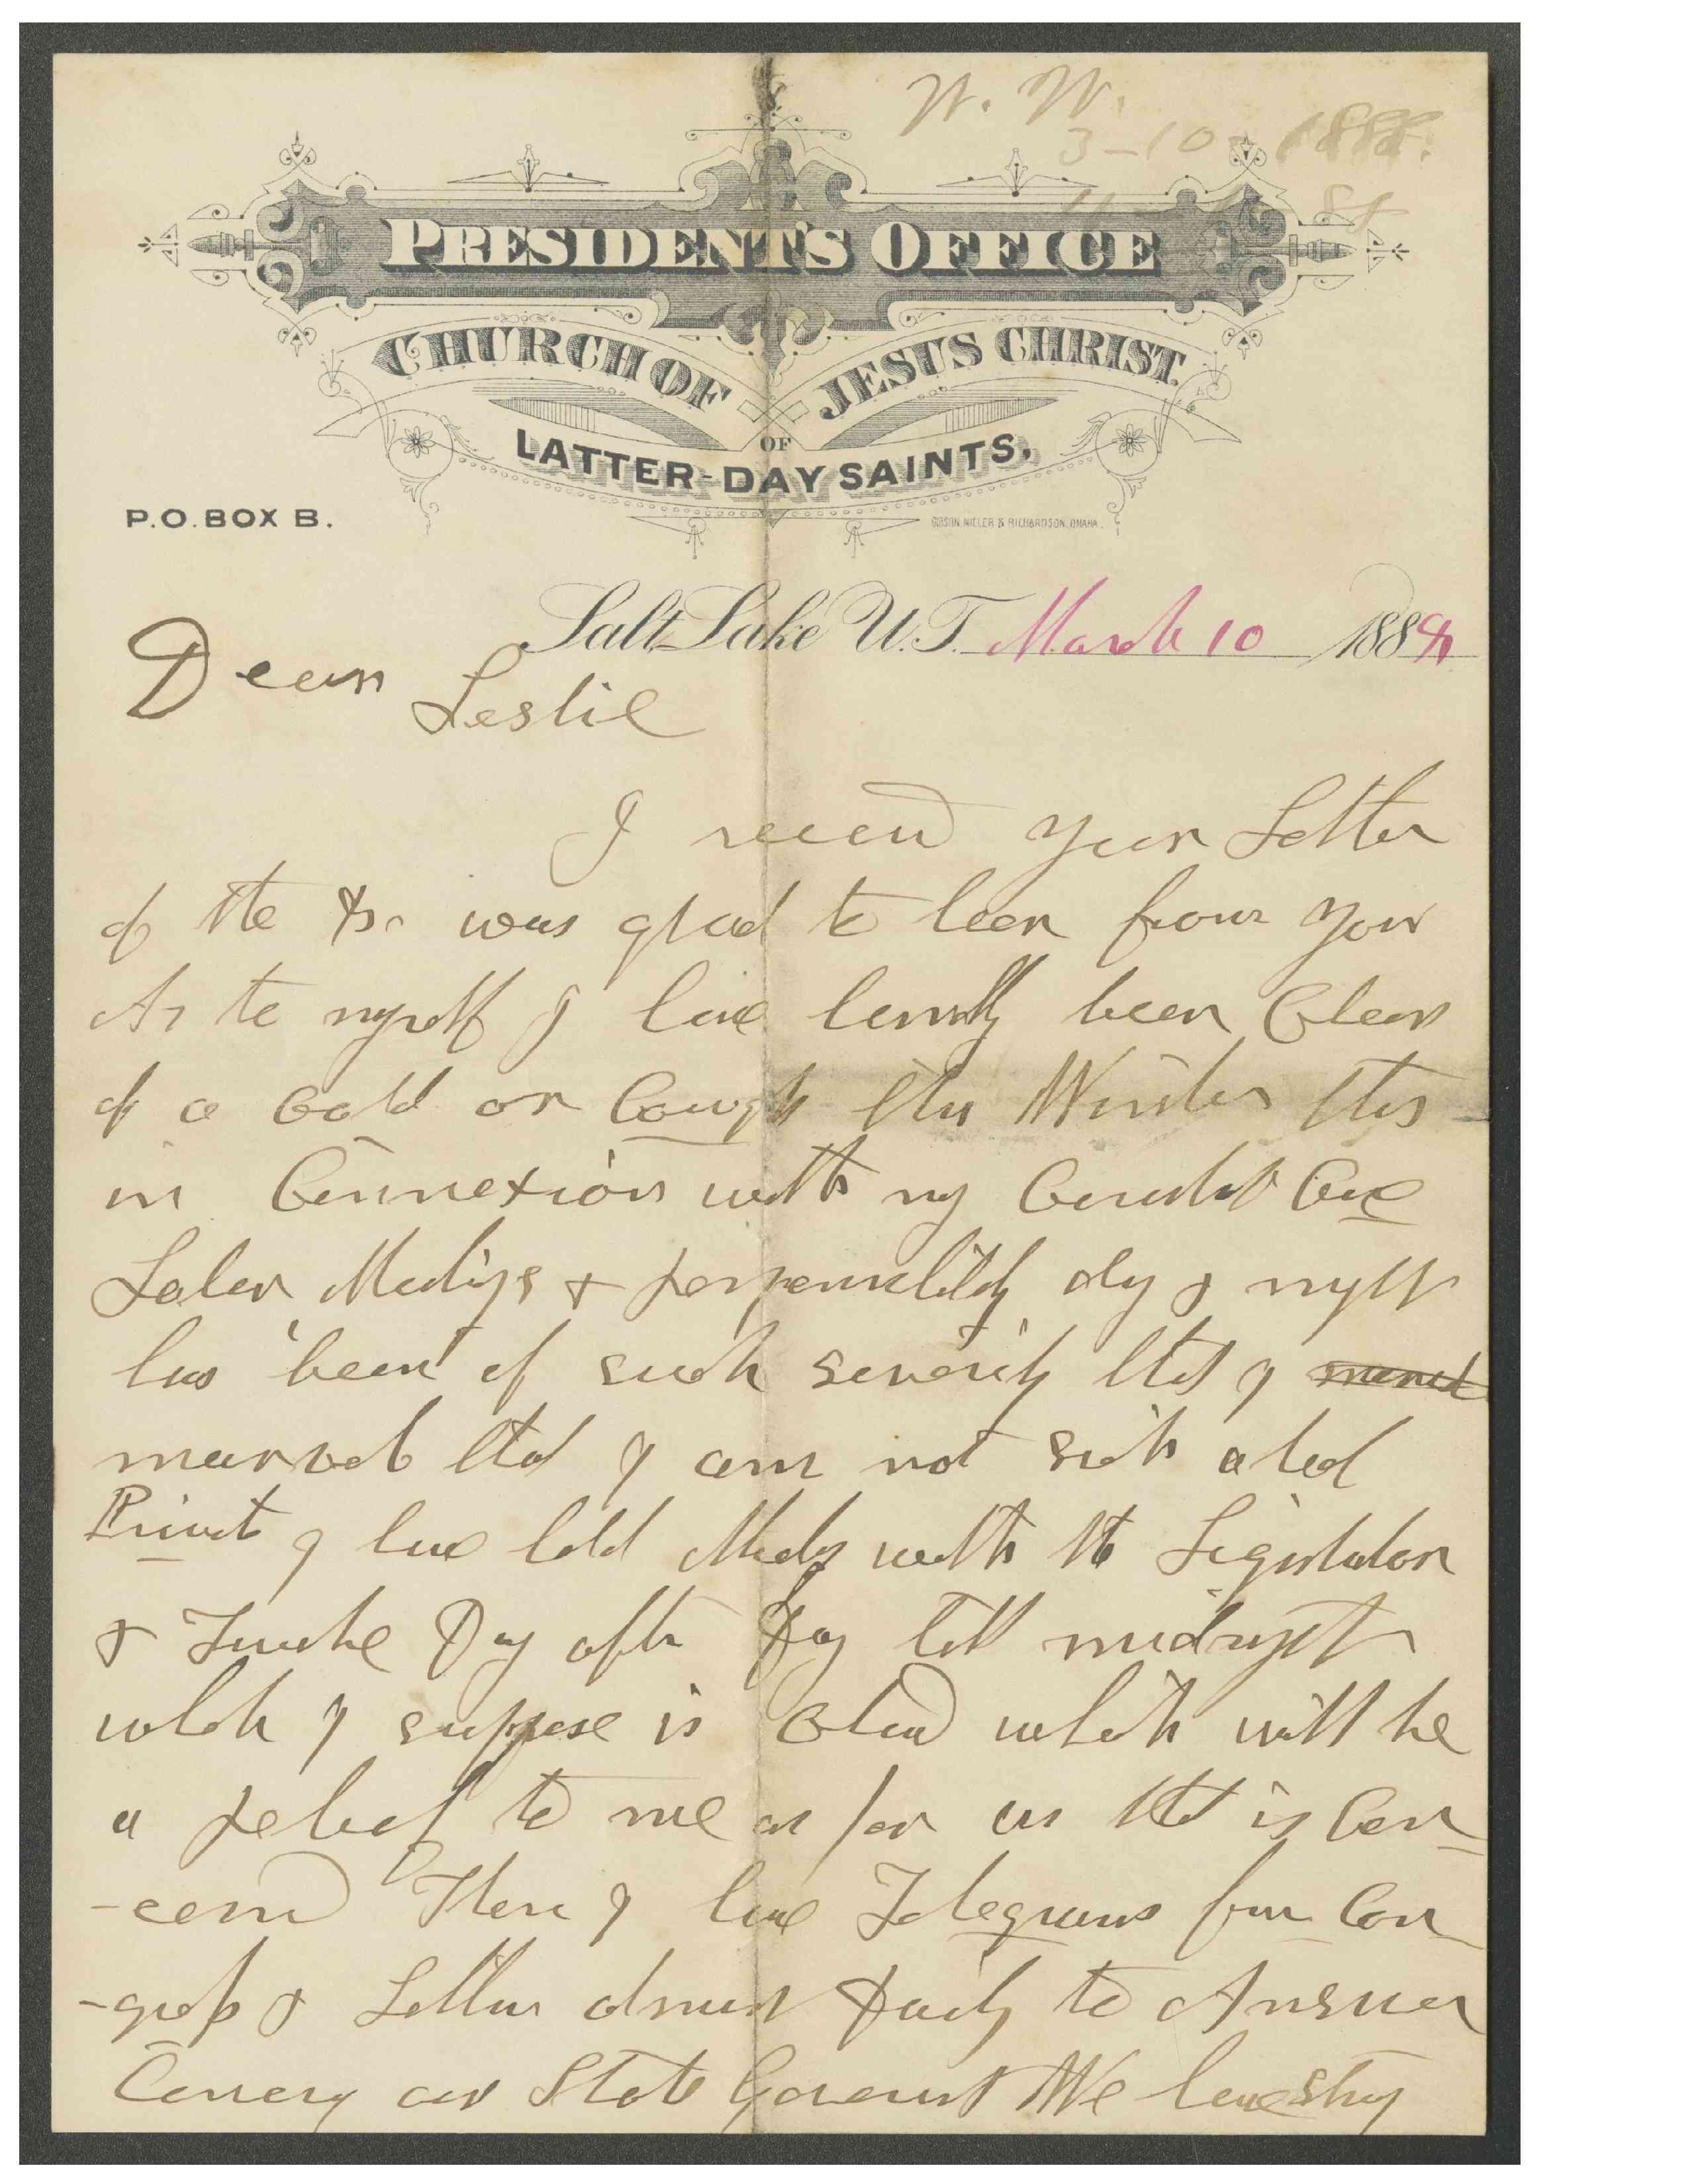 W. W.
3-10-1888.
PRESIDENT'S OFFICE
CHURCH OF JESUS CHRIST
OF
LATTER-DAY SAINTS.
P.O. BOX B.
GIBSON, MILLER & RICHARDSON, OMAHA.
Salt Lake U.T. March 10 1888
Dear Leslie
I receivd your Letter
of the was glad to hear from you
As to myself I have hardly been Clear
of a Cold or Cough this Winter this
in Connexion with my Constant Care
Labor Meetings & responsibility day & night
has been of such severity that I
marvel that I am not sick abed
Privat I have held Meetings with the Legislator
& Twelve Day after Day till midnight
which I suppose is Closed which will be
a relief to me as far as that is Con-
-cernd Then I have Telegrams from Con
-gress & Letters almost Daily to Answer
Concerng our State Government We have strong